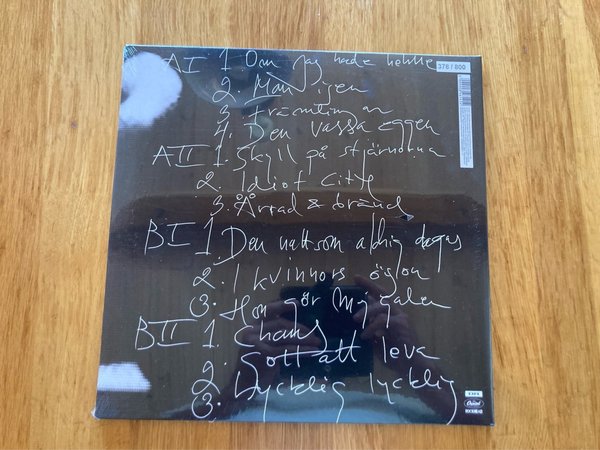 AI 1 Om jag hade henne
376 / 800
2. Man igen
3. Främlingar
4. Den vassa eggen
AII 1. Skyll på stjärnorna
2. Idiot City
3. Ärrad & bränd
BI 1. Den natt som aldrig dagas
2. I kvinnors ögon
3. Hon gör mig galen
BII 1. Chans
2. Gott att leva
3. Lycklig lycklig
Capitol
ROCKHEAD